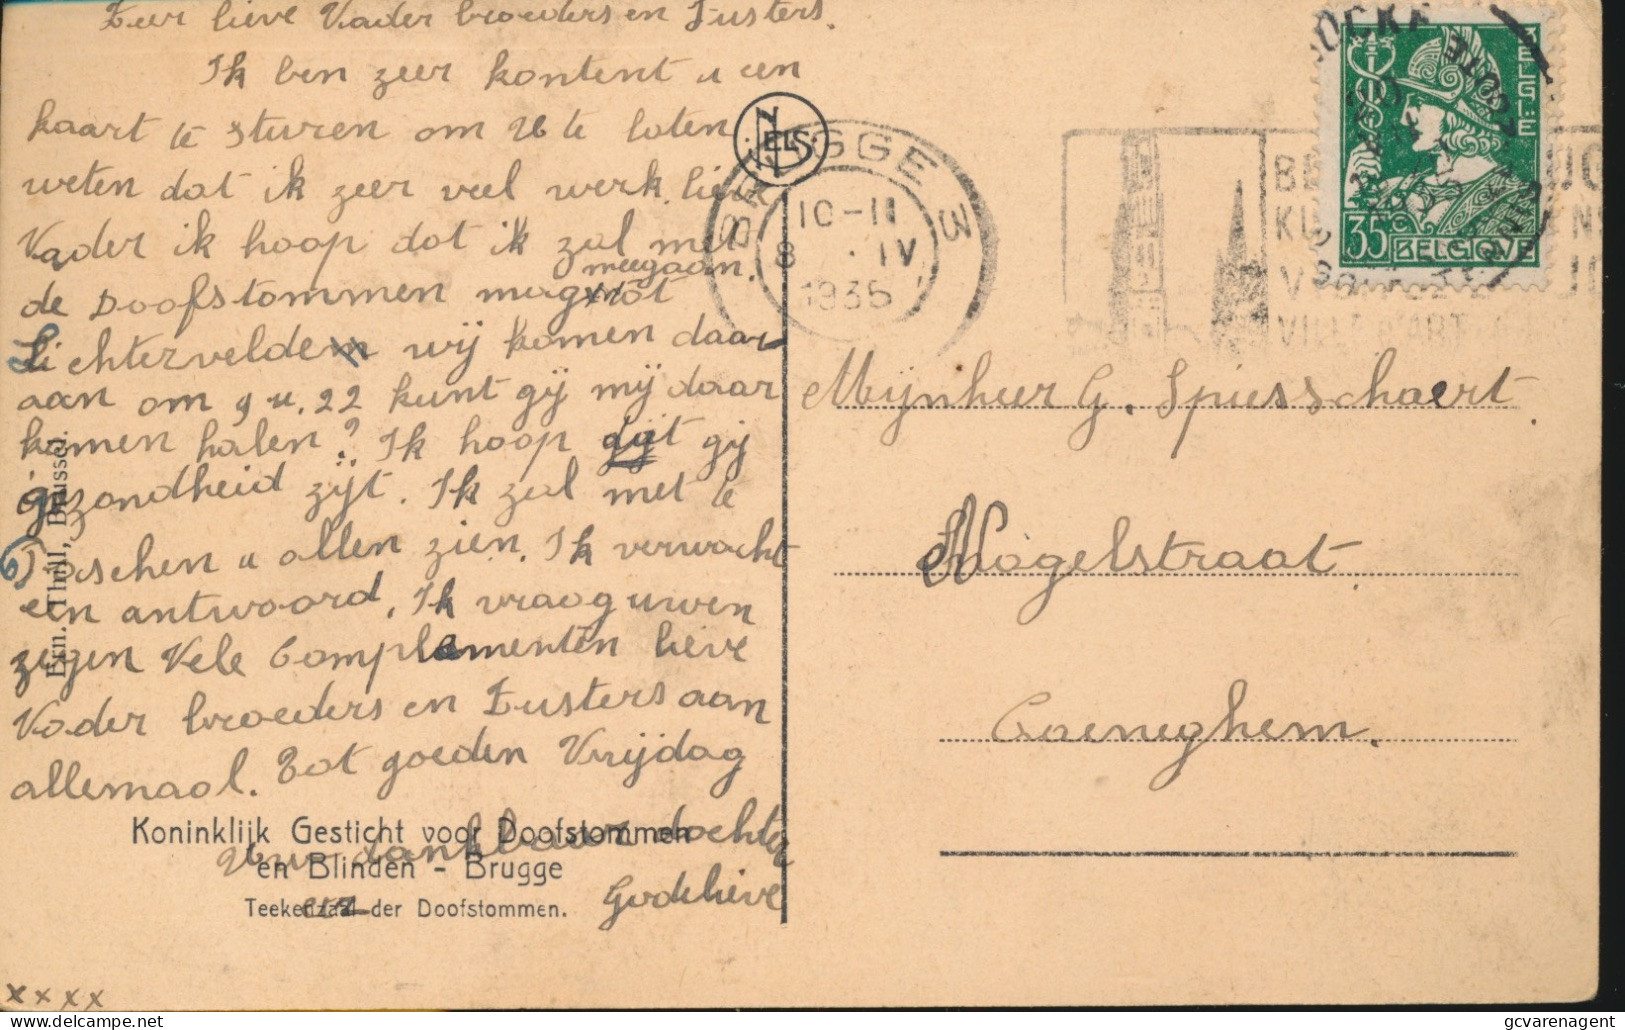 Zeer lieve Vader broeders en Zusters.
Ik ben zeer kontent u een
kaart te sturen om U te laten
weten dat ik zeer veel werk. lieve
Vader ik hoop dat ik zal met
meegaan.
de Doofstommen mag tot
Lichtervelde wij komen daar
aan om 9 u. 22 kunt gij mij daar
komen halen? Ik hoop dat gij
gezondheid zijt. Ik zal met te
Paschen u allen zien. Ik verwacht
een antwoord. Ik vraag uwen
zegen Vele Complementen lieve
Vader broeders en Zusters aan
allemaal. Tot goeden Vrijdag
Uw dankbaar dochter
Godelieve
xxxx
Koninklijk Gesticht voor Doofstommen
en Blinden - Brugge
Teekenzaal der Doofstommen.
Ern. Thill, Brussel.
NELS
BRUGGE 3
10-11
8 · IV
1935
VILLE D'ART
BELGIQUE
BELGIE
35c
Mijnheer G. Spiesschaert.
Nogelstraat.
Coeneghem.
gcvarenagent